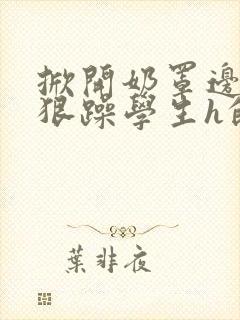 掀開奶罩邊
狠躁學生h
葉非夜